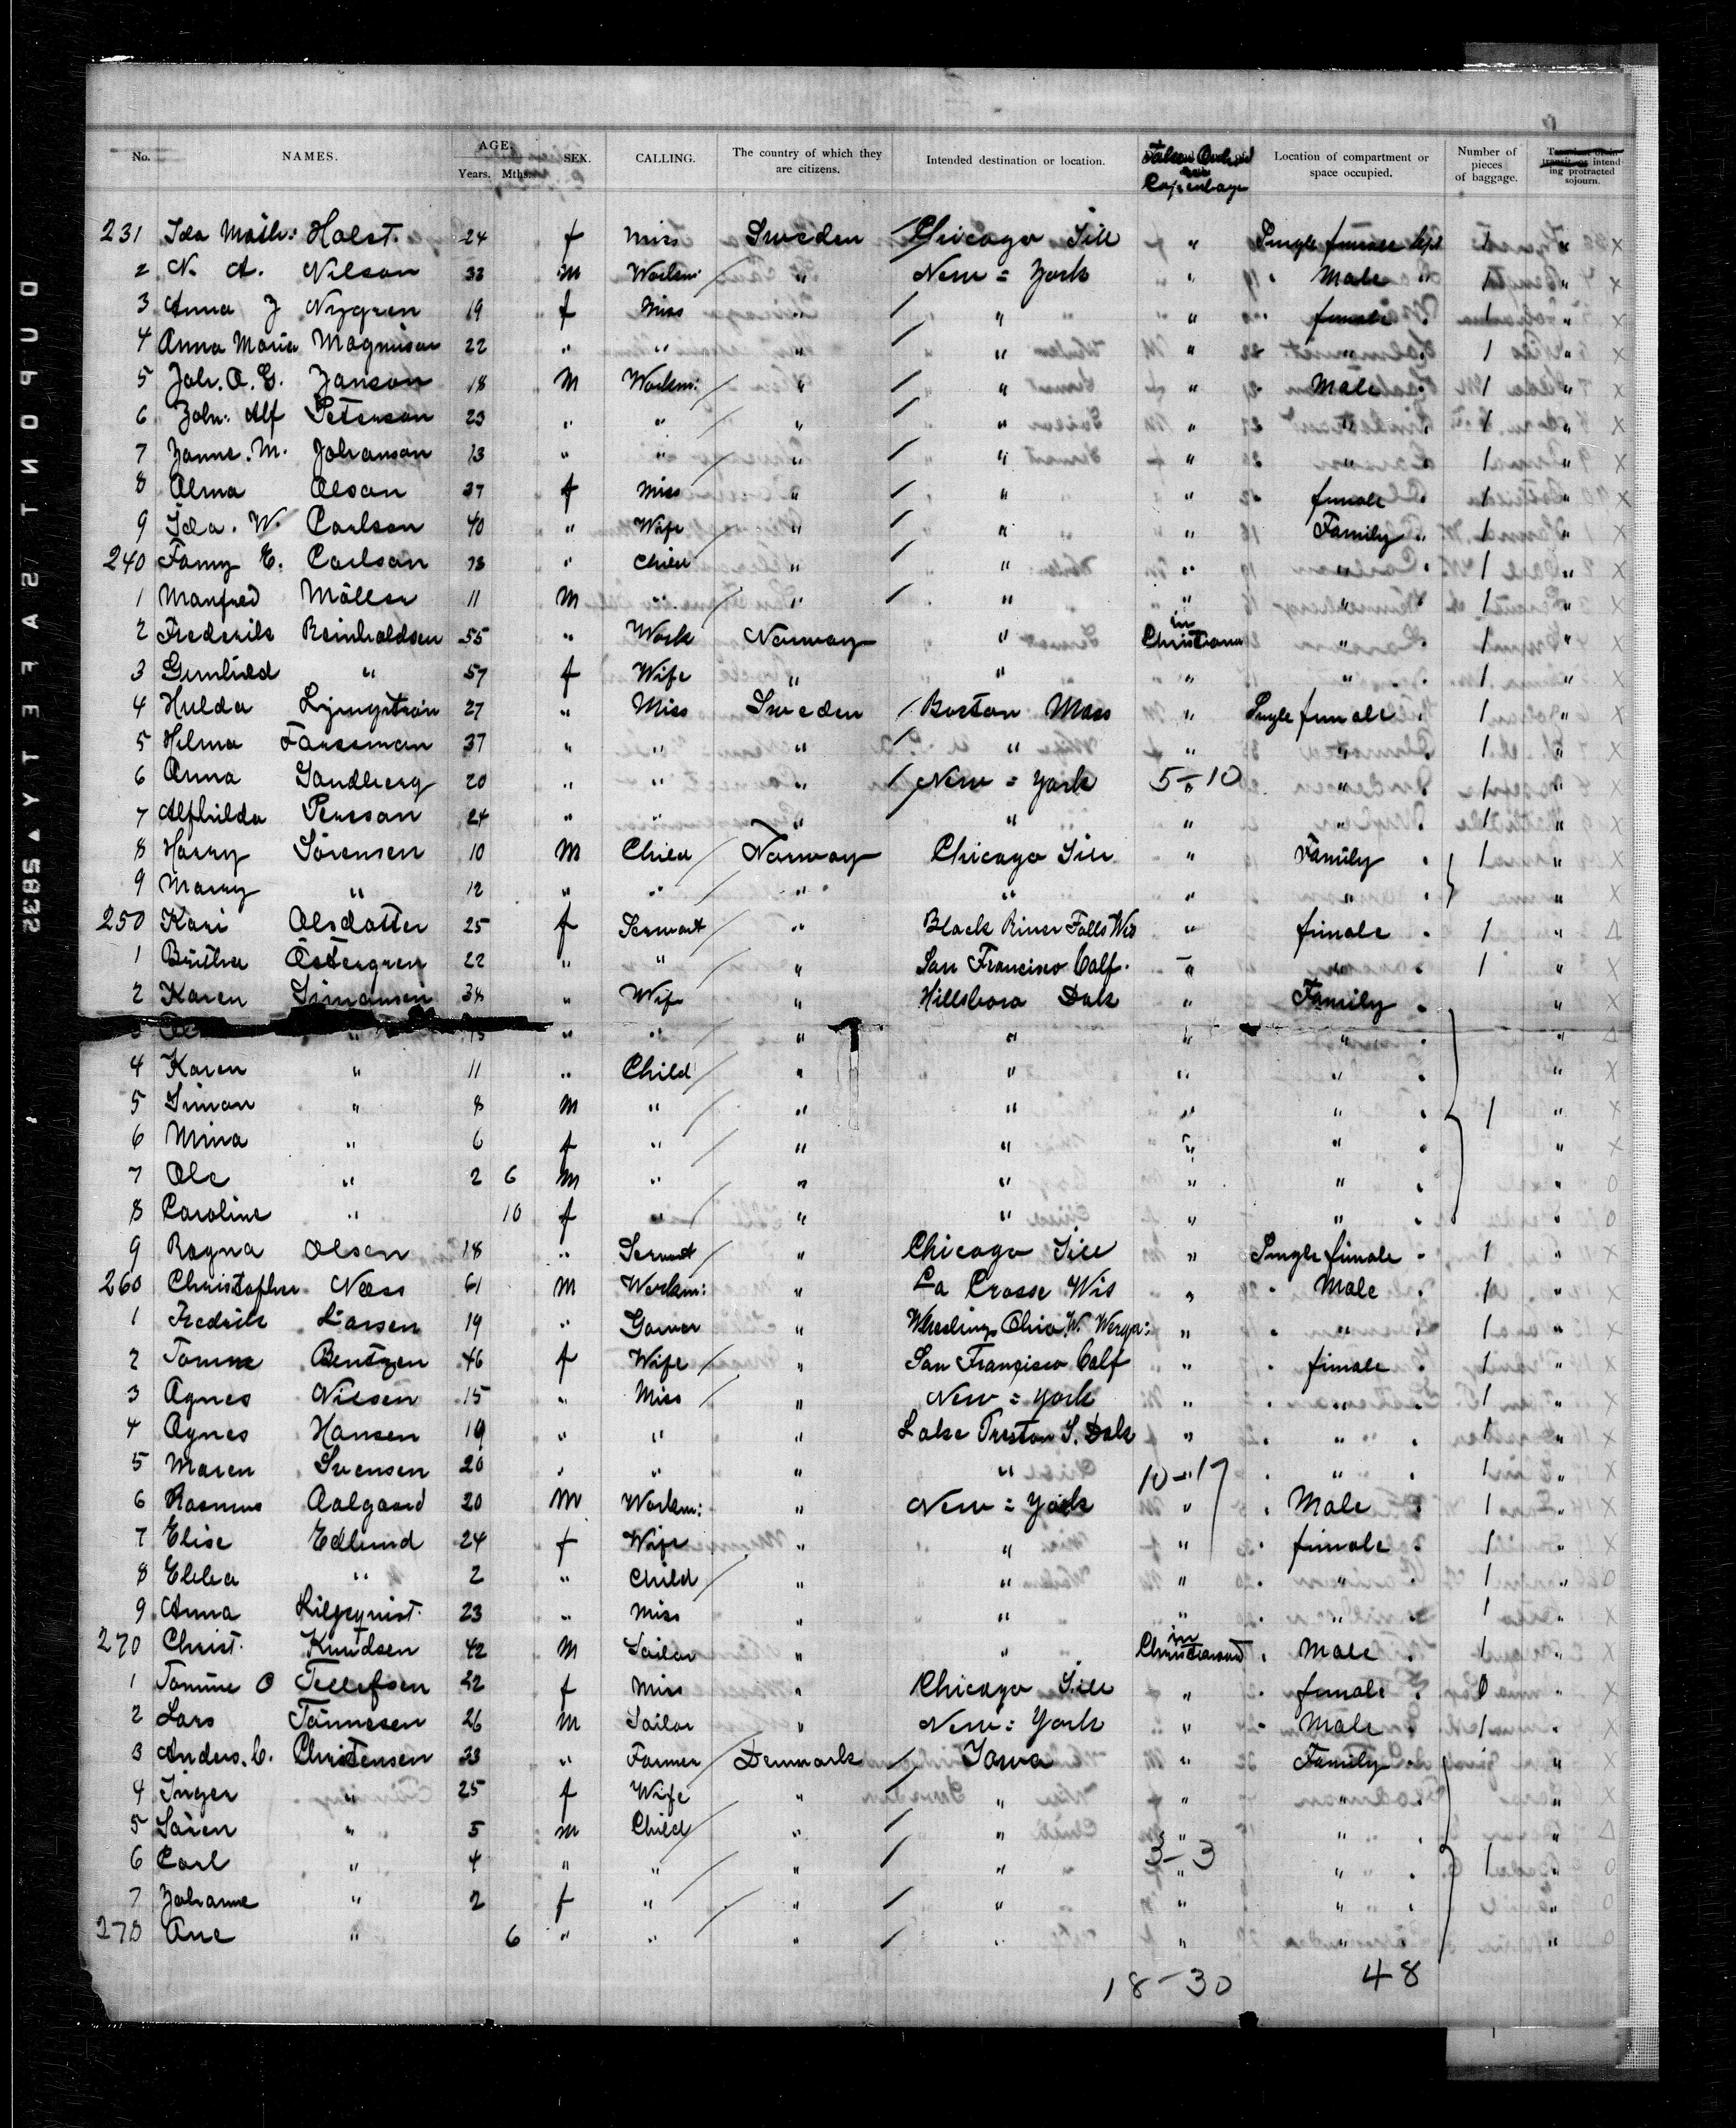 No. NAMES. AGE. Years. Mths. SEX. CALLING. The country of which they are citizens. Intended destination or location. Taken Onboard in Copenhagen Location of compartment or space occupied. Number of pieces of baggage. Transient or in transit, or intending protracted sojourn.
231 Ida Math: Holst. 24 f Miss Sweden / Chicago Ill " Single female 1 " X
2 N. A. Nilson 33 m Workm: " New = York " Male " 1 " X
3 Anna J Nygren 19 f Miss " / " " female 1 " X
4 Anna Maria Magnuson 22 " " " / " " " 1 " X
5 Joh. A. G. Janson 18 M Workm: " / " " Male 1 " X
6 Joh: Alf Peterson 23 " " " / " " " 1 " X
7 Janne. M. Johanson 13 " " " / " " " 1 " X
8 Alma Olson 37 f Miss " / " " female 1 " X
9 Ida. W. Carlson 40 " Wife " / " " Family 1 " X
240 Fanny E. Carlson 13 " Child " / " " " 1 " X
1 Manfred Möller 11 M " " / " " " 1 " X
2 Frederik Reinholdsen 55 " Work Norway " in Christiania " 1 " X
3 Gunhild " 57 f Wife " " " " 1 " X
4 Hulda Ljungström 27 " Miss Sweden / Boston Mass " Single female 1 " X
5 Hilma 37 " " " / " " " 1 " X
6 Anna Sandberg 20 " " " / New = York 5-10 " 1 " X
7 Alfhilda Persson 24 " " " " " " 1 " X
8 Harry Sörensen 10 M Child Norway Chicago Ill " Family 1 " X
9 Marry " 12 " " " " " " " X
250 Kari Olsdatter 25 f Servant " Black River Falls Wis " female 1 " Δ
1 Östergren 22 " " " San Francisco Calf. " " 1 " X
2 Karen Simonsen 34 " Wife " Hillsboro Dak " Family " X
" 13 " " " " " " " Δ
4 Karen " 11 " Child " " " " " X
5 Simon " 8 m " " " " " 1 " X
6 Mina " 6 f " " " " " " X
7 Ole " 2 6 m " " " " " " O
8 Caroline " 10 f " " " " " " O
9 Ragna Olsen 18 " Servant " Chicago Ill " Single female 1 " X
260 Christopher Næss 61 m Workm: " La Crosse Wis " Male 1 " X
1 Fredrik Larsen 19 " " Wheeling Ohio W. " " 1 " X
2 Bentzen 46 f Wife " San Francisco Calf " female 1 " X
3 Agnes Nilsen 15 " Miss " New = York " " 1 " X
4 Agnes Hansen 19 " " " Lake Preston S. Dak " " 1 " X
5 Maren Svensen 20 " " " " 10-17 " 1 " X
6 Rasmus Aalgaard 20 M Workm: " New = York " Male 1 " X
7 Elise Edlund 24 f Wife " " " female 1 " X
8 Ebba " 2 " Child " " " " 1 " O
9 Anna Liljeqvist. 23 " Miss " " " " 1 " X
270 Christ. Knudsen 42 M Sailor " " in Christiansand Male 1 " X
1 Tomine O Tellefsen 32 f Miss " Chicago Ill " female 0 " X
2 Lars Tönnesen 26 M Sailor " New = York " Male 1 " X
3 Anders. C. Christensen 33 " Farmer Denmark / Iowa " Family " X
4 Inger " 25 f Wife " " " " " X
5 Sören " 5 m Child " / " " " " Δ
6 Carl " 4 " " " / " 3-3 " 1 " O
7 Johanne " 2 f " " / " " " " O
278 Ane " 6 " " " / " " " " O
18-30 48
DUPONT SAFETY ▲ 5832